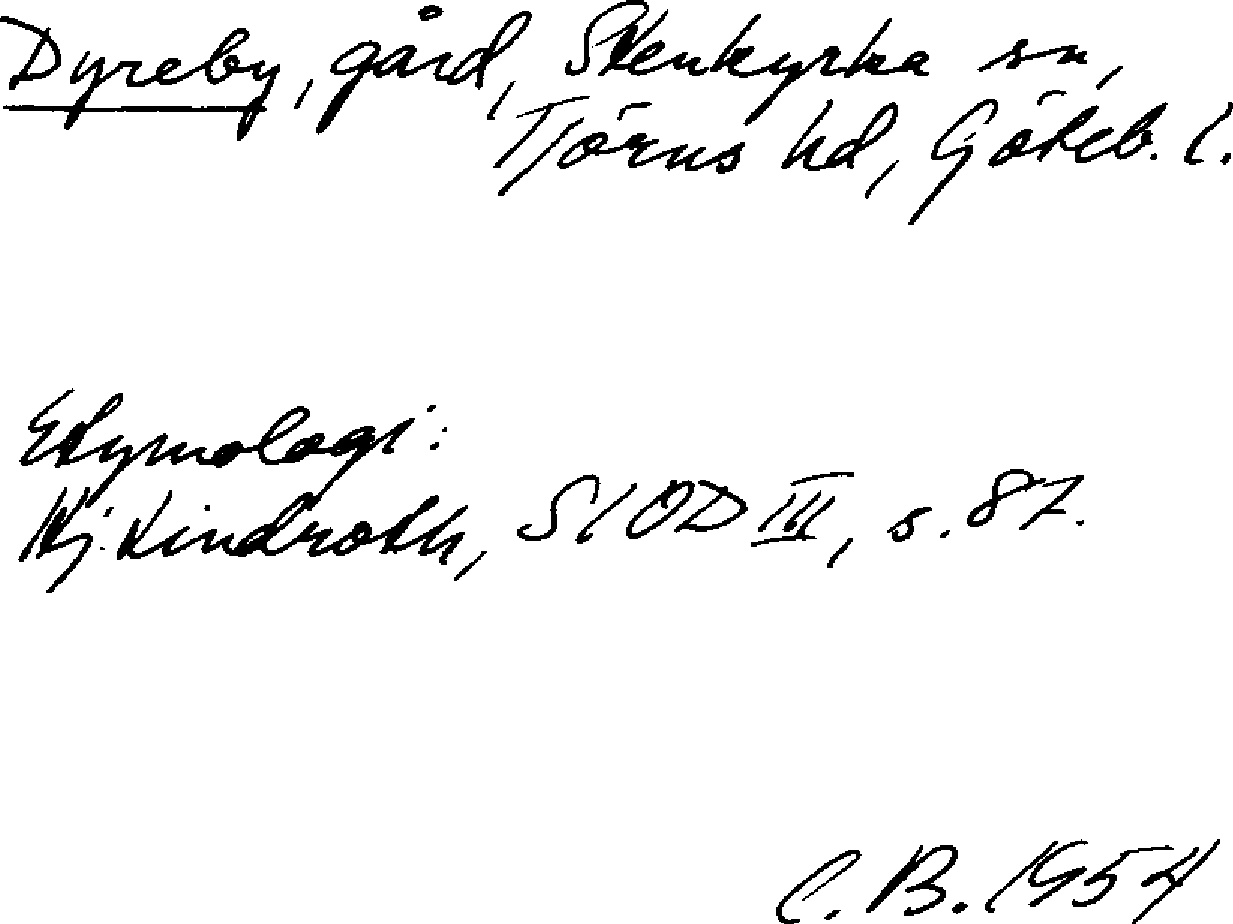 Dyreby, gård, Stenkyrka sn,
Tjörns hd, Göteb. l.
Etymologi:
Hj. Lindroth, SIOD III, s. 87.
C. B. 1954